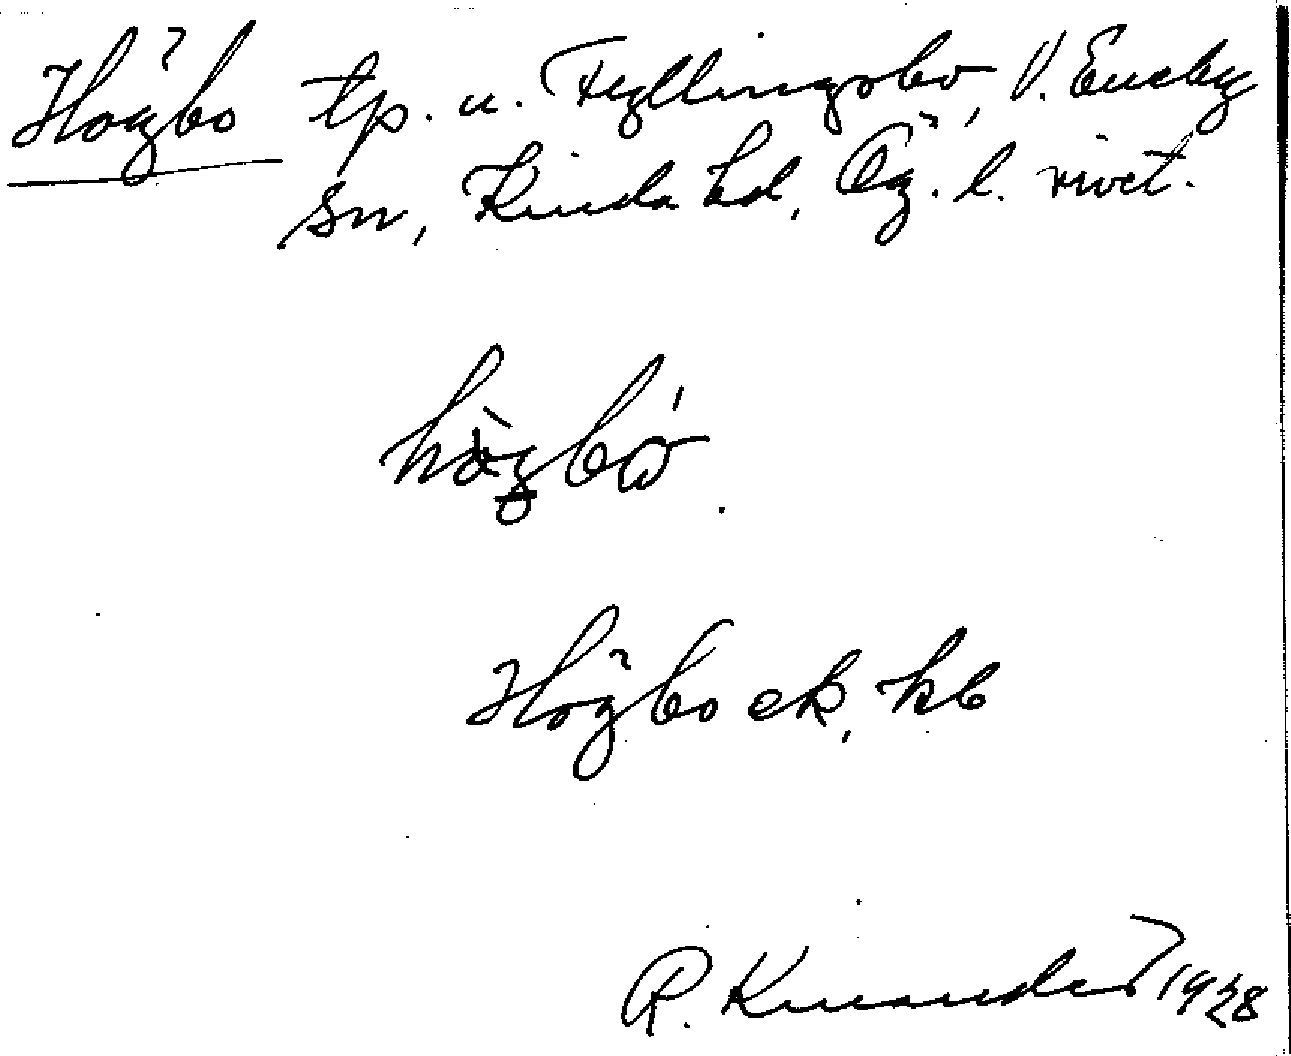 Högbo tp. u. Fyllingsbo, V. Eneby
sn, Kinda hd, Ög. l. rivet.
hö̀gbó.
Högbo ek, kb
R. Kinander 1928